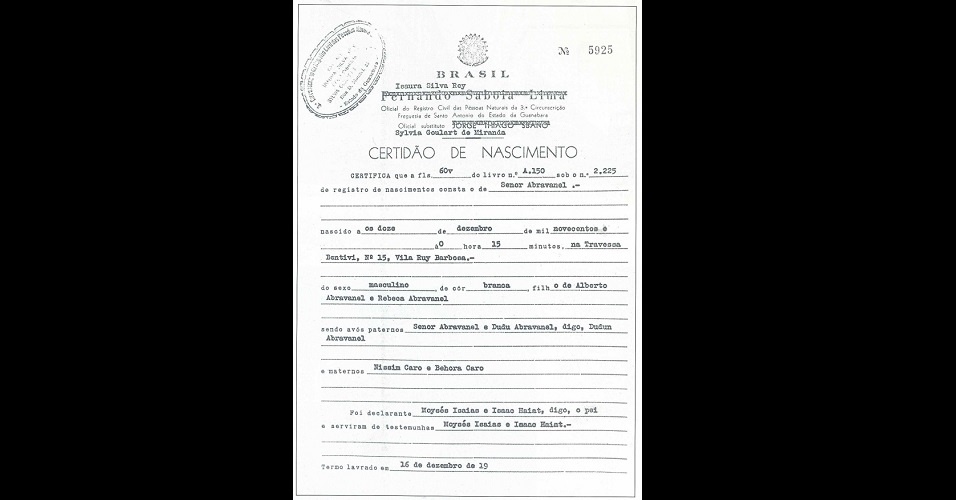 Nº 5925
BRASIL
Isaura Silva Rey
Fernando Saboia Lima
Oficial do Registro Civil das Pessoas Naturais da 3.ª Circunscrição
Freguesia de Santo Antonio do Estado da Guanabara
Oficial substituto JORGE THIAGO SBANO
Sylvia Goulart de Miranda
CERTIDÃO DE NASCIMENTO
CERTIFICA que a fls 60v do livro n.º A.150 sob o n.º 2.225
de registro de nascimentos consta o de Senor Abravanel .-
nascido a os doze de dezembro de mil novecentos e
à0 hora 15 minutos, na Travessa
Bentivi, Nº 15, Vila Ruy Barbosa.-
do sexo masculino de côr branca, filh o de Alberto
Abravanel e Rebeca Abravanel
sendo avós paternos Senor Abravanel e Dudu Abravanel, digo, Dudun
Abravanel
e maternos Nissim Caro e Behora Caro
Foi declarante Moysés Isaias e Isaac Haint, digo, o pai
e serviram de testemunhas Moysés Isaias e Isaac Haint.-
Termo lavrado em 16 de dezembro de 19